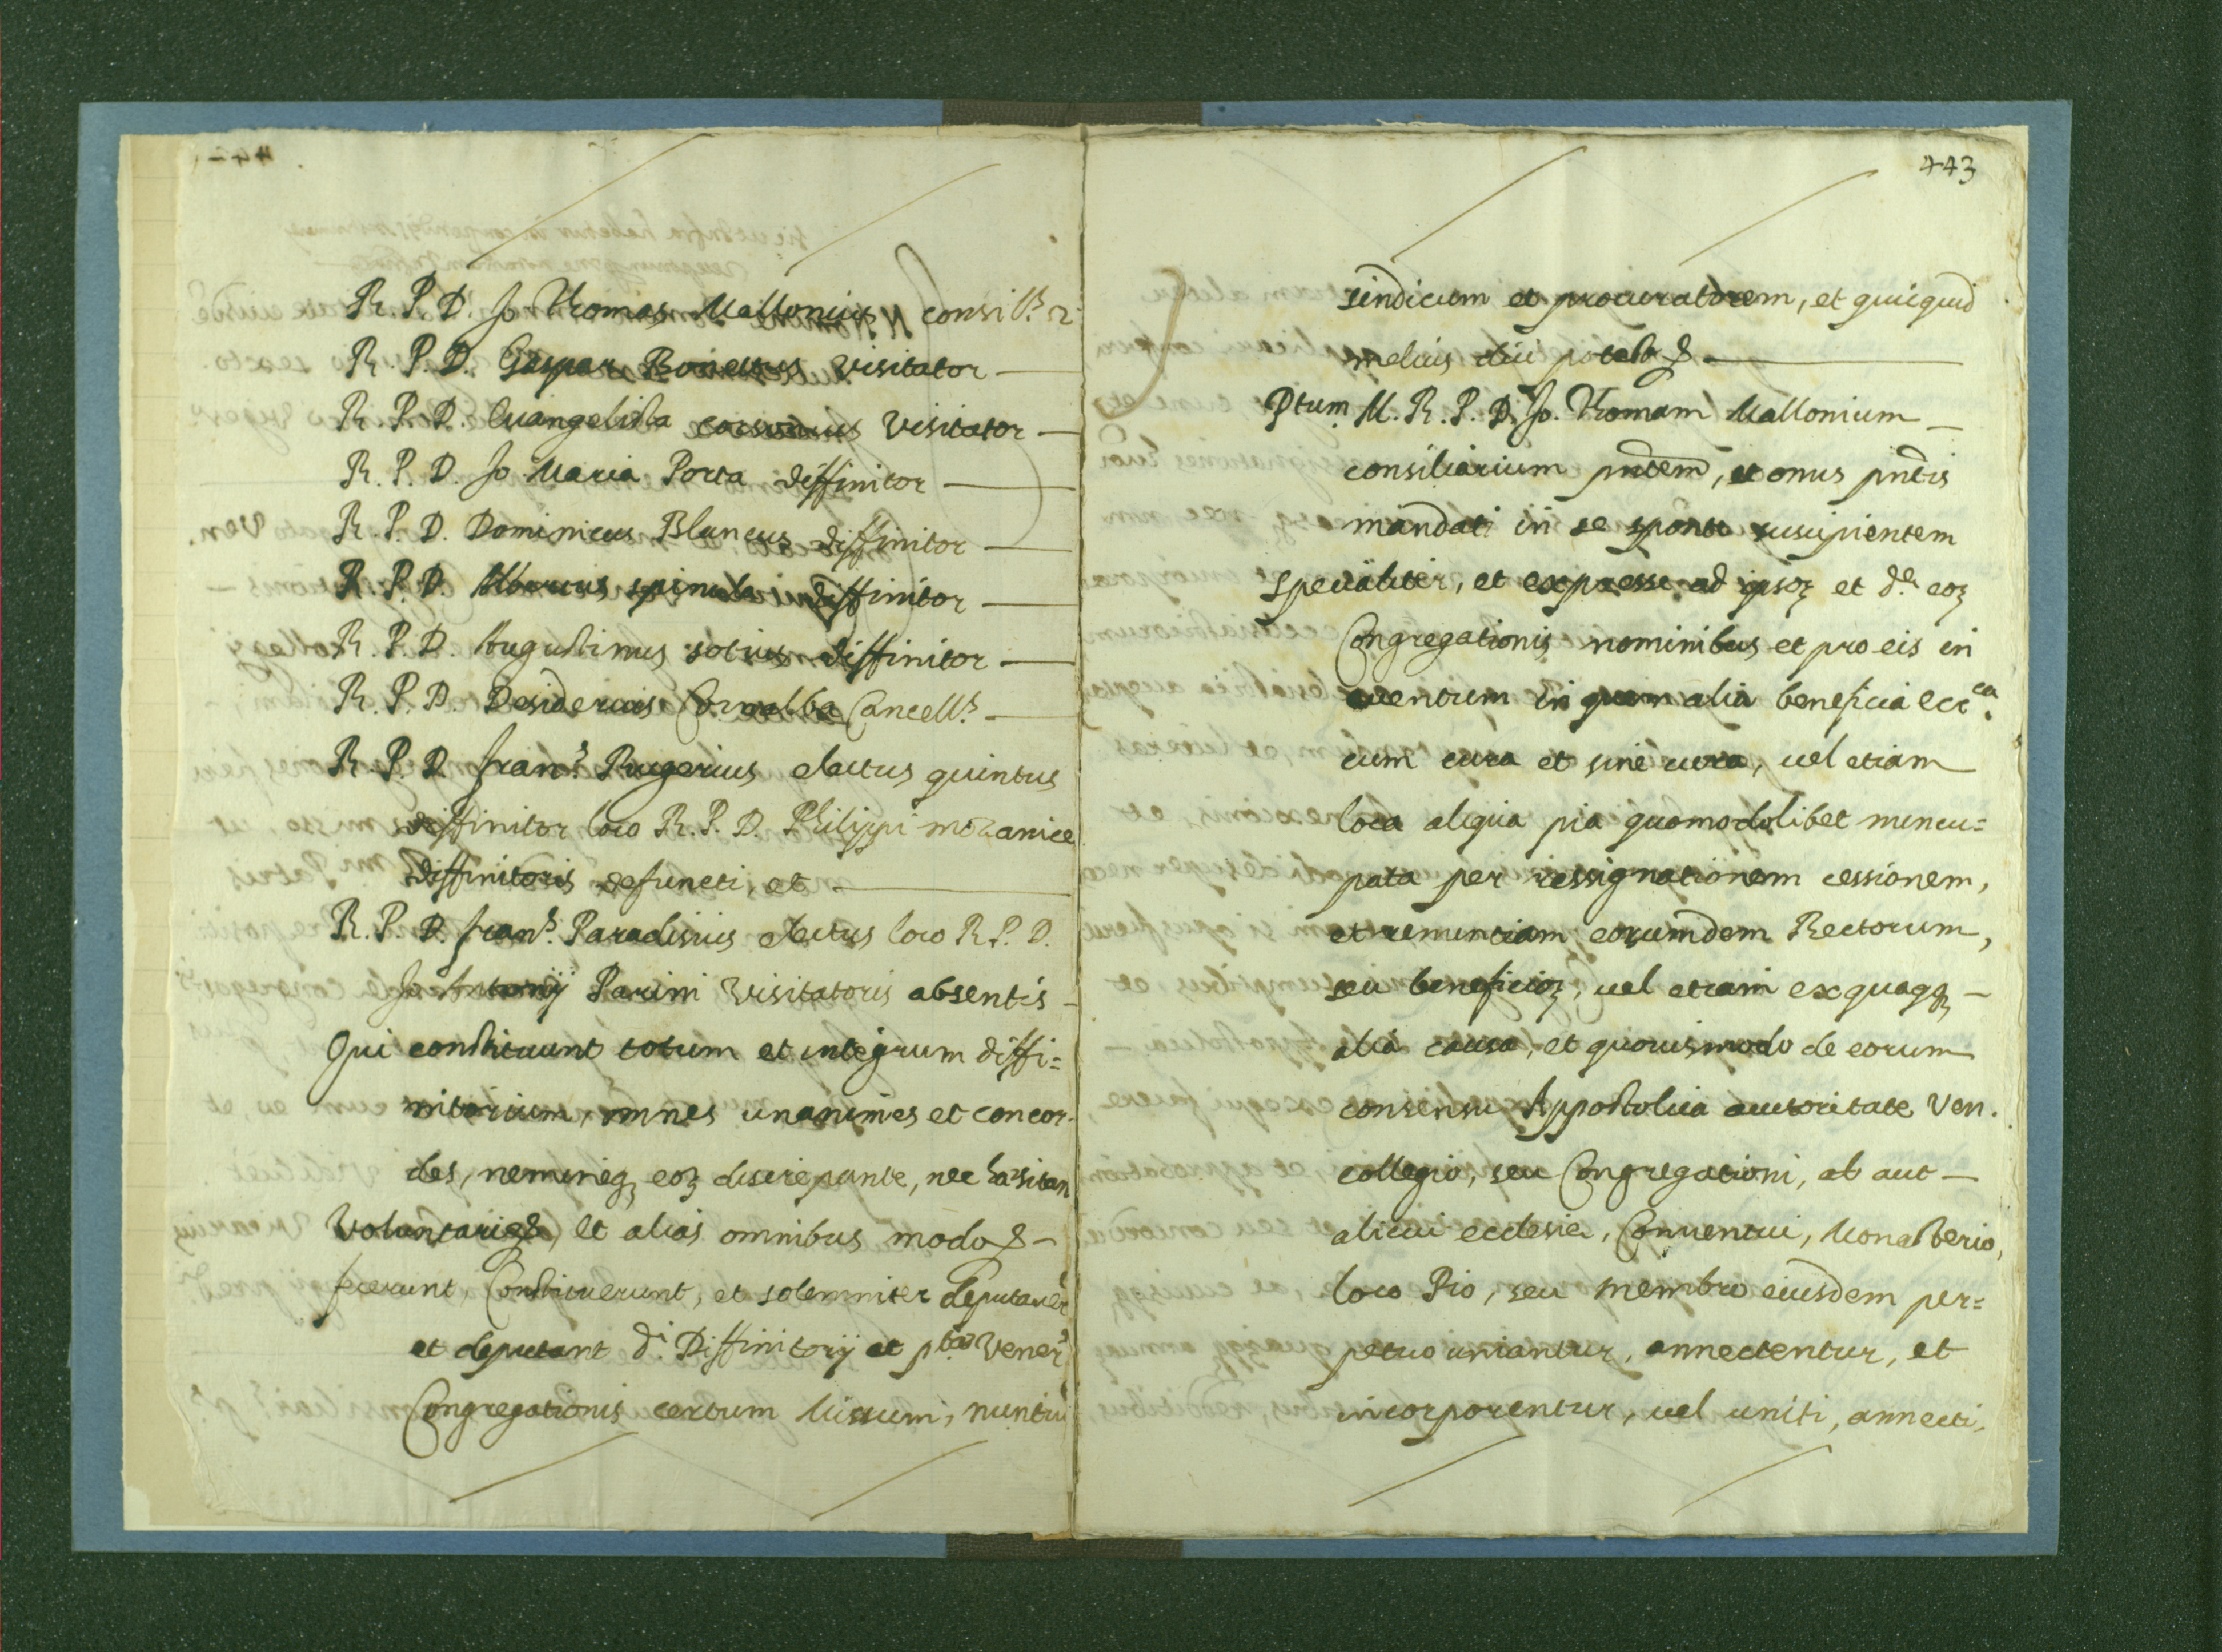 R. P. D. Jo Thomas Mallonius consill.s
R. P. D. Gaspar Bonettus visitator
R. P. D. Euangelista visitator
R. P. D. Jo Maria Porta diffinitor
R. P. D. Dominicus Blancus diffinitor
R. P. D. Albertus spinula diffinitor
R. P. D. Augustinus solius diffinitor
R. P. D. Desiderius Cornalba Cancell.s
R. P. D. fran.s Rugerius electus quintus
diffinitor loco R. P. D. Philippi
diffinitoris defuncti, et
R. P. D. fran.s Paradisius electus loco R. P. D.
Jo Antonij Parini visitatoris absentis
Qui constituunt totum et integrum diffi=
nitorium, omnes unanimes et concor-
des, nemineq; eoꝝ discrepante, nec hæsitan
Voluntarie & et alias omnibus modo &
fecerunt, Constituerunt, et solemniter deputauer
et deputant d.i Diffinitorij et Vener.s
Congregationis certum Missum, nuntiū
443
sindicum et procuratorem, et quicquid
melius dici potest &
Ptum. M. R. P. D. Jo. Thomam Mallonium
consiliarium pñtem, et onus pñtis
mandati in se sponte suscipientem
specialiter, et expresse ad ipsoꝝ et d.e eoꝝ
Congregationis nominibus et pro eis in
euentum in quem alia beneficia ecc.ca
cum cura et sine cura, uel etiam
loca aliqua pia quomodolibet nuncu=
pata per ressignationem cessionem,
et renuntiam eorumdem Rectorum,
seu beneficioꝝ, uel etiam ex quaqꝫ
alia causa, et quouismodo de eorum
consensu Appostolica auctoritate Ven.
collegio, seu Congregationi, ab aut
alicui ecclesiæ, Conuentui, Monasterio,
loco Pio, seu membro eiusdem per=
petuo uniantur, annectentur, et
incorporentur, uel uniti, annecti,